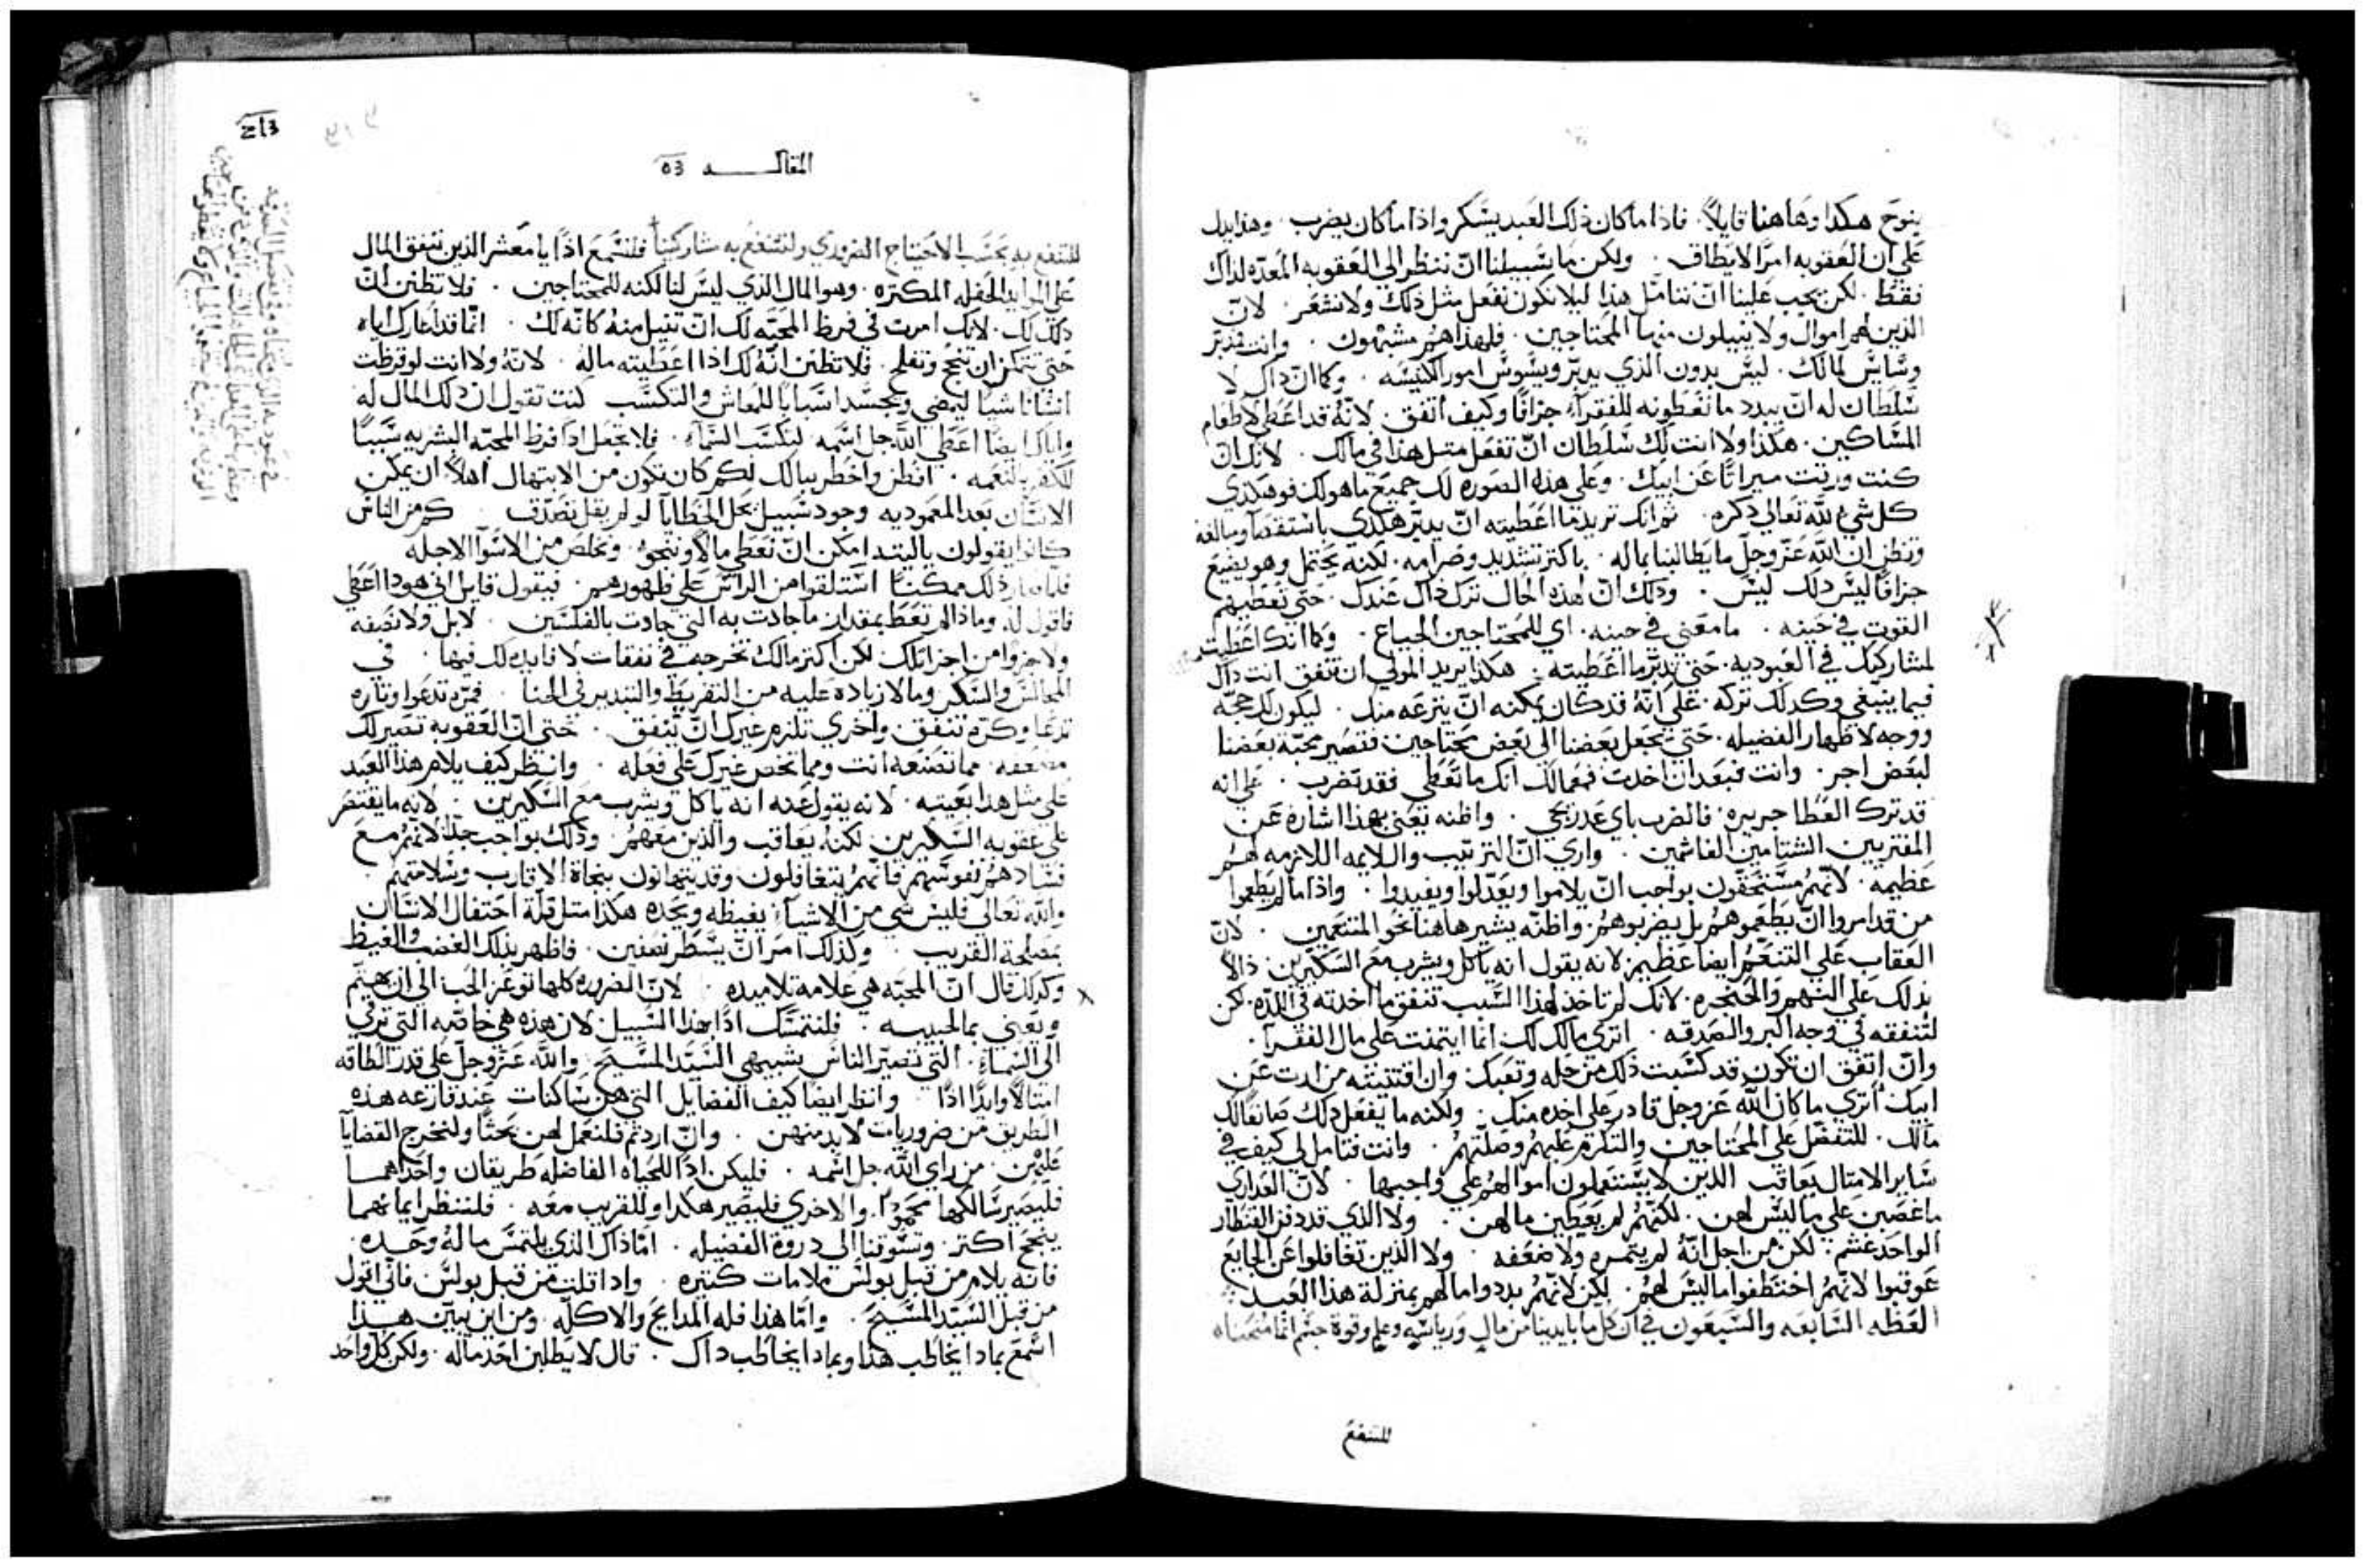 ينوح هكدا وهاهنا قايلاً. فاذا ما كان ذلك العبد يسكر واذا ما كان يضرب. وهذا يدل
علي ان العقوبه امرًا لا يطاق. ولكن ما سبيلنا ان ننظر الي العقوبه المعده لذاك
فقط. لكن يجب علينا ان نتامل هذا ليلا نكون نفعل مثل ذلك ولا نشعر. لان
الذين لهم اموال ولا ينيلون منها المحتاجين. فلهذا هم مشبهون. وانت مدبر
وسايس لمالك. ليس بدون الذي يدبر ويسوس امور الكنيسه. وكما ان ذاك لا
سلطان له ان يبدد ما تعطونه للفقرآء جزافًا وكيف اتفق لانه قد اعطي لاطعام
المساكين. هكذا ولا انت لك سلطان ان تفعل متل هذا في مالك. لانك ان
كنت ورتت ميراتًا عن ابيك. وعلي هذه الصوره لك جميع ما هو لك فهو هكدي
كل شي لله تعالي ذكره. ثم انك تريد ما اعطيته ان يدبر هكدي باستقصآ ومبالغه
وتظن ان الله عز وجل ما يطالبنا بماله. باكتر تشديد وصرامه. لكنه يحتمل وهو يضيع
جزافًا ليس دلك ليس. ودلك ان لهذه الحال ترك ذاك عندك. حتي تعطيهم
القوت في حينه. ما معني في حينه. اي للمحتاجين الجياع. وكما انك اعطيت
لمشاركيك في العبوديه. حتي يدبر ما اعطيته. هكذا يريد المولي ان تنفق انت ذاك
فيما ينبغي وكدلك تركه. علي انه قد كان يمكنه ان ينزعه منك. ليكون لك حجه
ووجه لاظهار الفضيله. حتي يجعل بعضنا الي بعض محتاجين فتصير محبة بعضنا
لبعض احر. وانت فبعد ان اخدت فمعما لك انك ما تعطي فقد تضرب. علي انه
قد ترك العطا جريره. فالضرب باي عدر يجي. واظنه يعني بهذا اشاره عن
المفتريين الشتامين الغاشمين. واري ان الترتيب واللايمه اللازمه لهم
عظيمه. لانهم مستحقون بواجب ان يلاموا ويعدلوا ويفيدوا. واذا ما لم يطعموا
من قد امروا ان يطعموهم بل يضربوهم. واظنه يشير هاهنا نحو المتنعمين. لان
العقاب علي التنعم ايضا عظيم. لانه يقول انه ياكل ويشرب مع السكيرين. دالاً
بدلك علي النهم والحنجره. لانك لم تاخذ لهذا السبب تنفق ما اخدته في اللذه. لكن
لتنفقه في وجه البر والصدقه. اتري مالك لك انما ايتمنت علي مال الفقرآ.
وان اتفق ان تكون قد كسبت ذلك من حله وتعبك وان اقتنيته من ارت عن
ابيك اتري ما كان الله عز وجل قادر علي اخده منك. ولكنه ما يفعل دلك صانعًا لك
مالك. للتفضل علي المحتاجين والتكرم عليهم وصلتهم. وانت فتامل لي كيف في
ساير الامتال يعاقب الذين لا يستعملون اموالهم علي واجبها. لان العداري
ما غصبن علي ما ليس لهن. لكنهم لم يعطين ما لهن. ولا الذي قد دفن القنطار
الواحد غشم. لكن من اجل انه لم يتمره ولا ضعفه. ولا الذين تغافلوا عن الجايع
عوقبوا لانهم اختطفوا ما ليس لهم. لكن لانهم بددوا مالهم بمنزلة هذا العبد
العظه السابعه والسبعون في ان كل ما بايدينا من مال ورياسه وعلم وقوة جسم انما منحناه
للننفع
المقالـــه 53
للننفع به بحسب الاحتياج الضروري ولننفع به مشاركينا فلنسمع اذًا يا معشر الذين ننفق المال
علي الموايد الحفله المكتره. وهو المال الذي ليس لنا لكنه للمحتاجين. فلا تظنن ان
دلك لك. لانك امرت في فرط المحبه لك ان تنيل منه كانه لك. انما قد اعارك اياه
حتي تتمكن ان تنجح وتفلح. فلا تظنن انه لك اذا اعطيته ماله. لانه ولا انت لو قرضت
انسانا شيًا ليمضي ويجسد اسبابًا للمعاش والتكسب كنت تقول ان دلك المال له
واياك ايضًا اعطي الله جل اسمه. لتكسب السمآء. فلا تجعل اذًا فرط المحبه البشريه سببًا
للكفر بالنعمه. افطن واخطر ببالك لكم كان تكون من الابتهال اهلاً ان يمكن
الانسان بعد المعموديه وجود سبيل يحل الخطايا لو لم يقل تصدق. كم من الناس
كانوا يقولون ياليتد امكن ان نعطي مالاً وننجو. ونخلص من الاسوآ الاجله
فلما صار ذلك ممكنًا استلقوا من الراس علي ظهورهم. فيقول قايل اني هودا اعطي
فاقول له. وماذا لم تعط بمقدار ما جادت به التي جادت بالفلسين. لا بل ولا نصفه
ولا جزوا من اجزاتلك لكن اكتر مالك تخرجه في نفقات لا فايده لك فيها. في
المجالس والسكر وما لا زياده عليه من التفريط والتبدير في الخنا. فمره تدعوا وتاره
تدعا وكره تنفق واخري تلزم غيرك ان تنفق. حتي ان العقوبه تصير لك
مضعفه. مما تصنعه انت ومما تحض غيرك علي فعله. وانظر كيف يلام هذا العبد
علي مثل هذا بعينه. لانه يقول عنه انه ياكل ويشرب مع السكيرين. لانه ما يقتصر
علي عقوبه السكيرين لكنه يعاقب والذين معهم. وذلك بواجب جدًا لانهم مع
فسادهم نفوسهم فانهم يتغافلون وقد يتهانون بنجاة الاقارب وسلامتهم.
والله تعالي فليس شي من الاشيآء يغيظه ويحده هكذا متل قلة احتفال الانسان
بمصلحة القريب. وكذلك امر ان يشطر نصفين. فاظهر بذلك الغضب والغيظ
وكدلك قال ان المحبه هي علامة تلاميده. لان الضروره كلها توعز الحب الي ان يهتم
ويعني بمالحبيبه. فلنتمسك اذًا بهذا السبيل لان هذه هي خاصه التي ترقي
الي السماء. التي تصير الناس بشبيهي السيد المسيح. والله عز وجل علي قدر الطاقه
امتالاً وابدًا اذًا. وانظر ايضا كيف الفضايل التي هن ساكنات عند قارعه هده
الطريق من ضروريات لا بد منهن. وان اردتم فلنعمل لهن بحتًا ولنخرج القضايا
عليهن. من راي الله جل اسمه. فليكن اذًا للحياه الفاضله طريقان واحداهما
فليصير سالكها محمودًا. والاخري فليصير هكدا وللقريب معه. فلننظر ايما بهما
ينجح اكتر. وتسوقنا الي دروة الفضيله. اما ذاك الذي يلتمس ما له وحده.
فانه يلام من قبل بولس ملامات كتيره. واد اقلت من قبل بولس فاني اقول
من قبل السيد المسيح. واما هذا فله المدايح والاكله. ومن اين يبين هذا
اسمع بمادا يخاطب هذا وبمادا يخاطب داك. قال لا يطلبن احد ماله. ولكن كل واحد